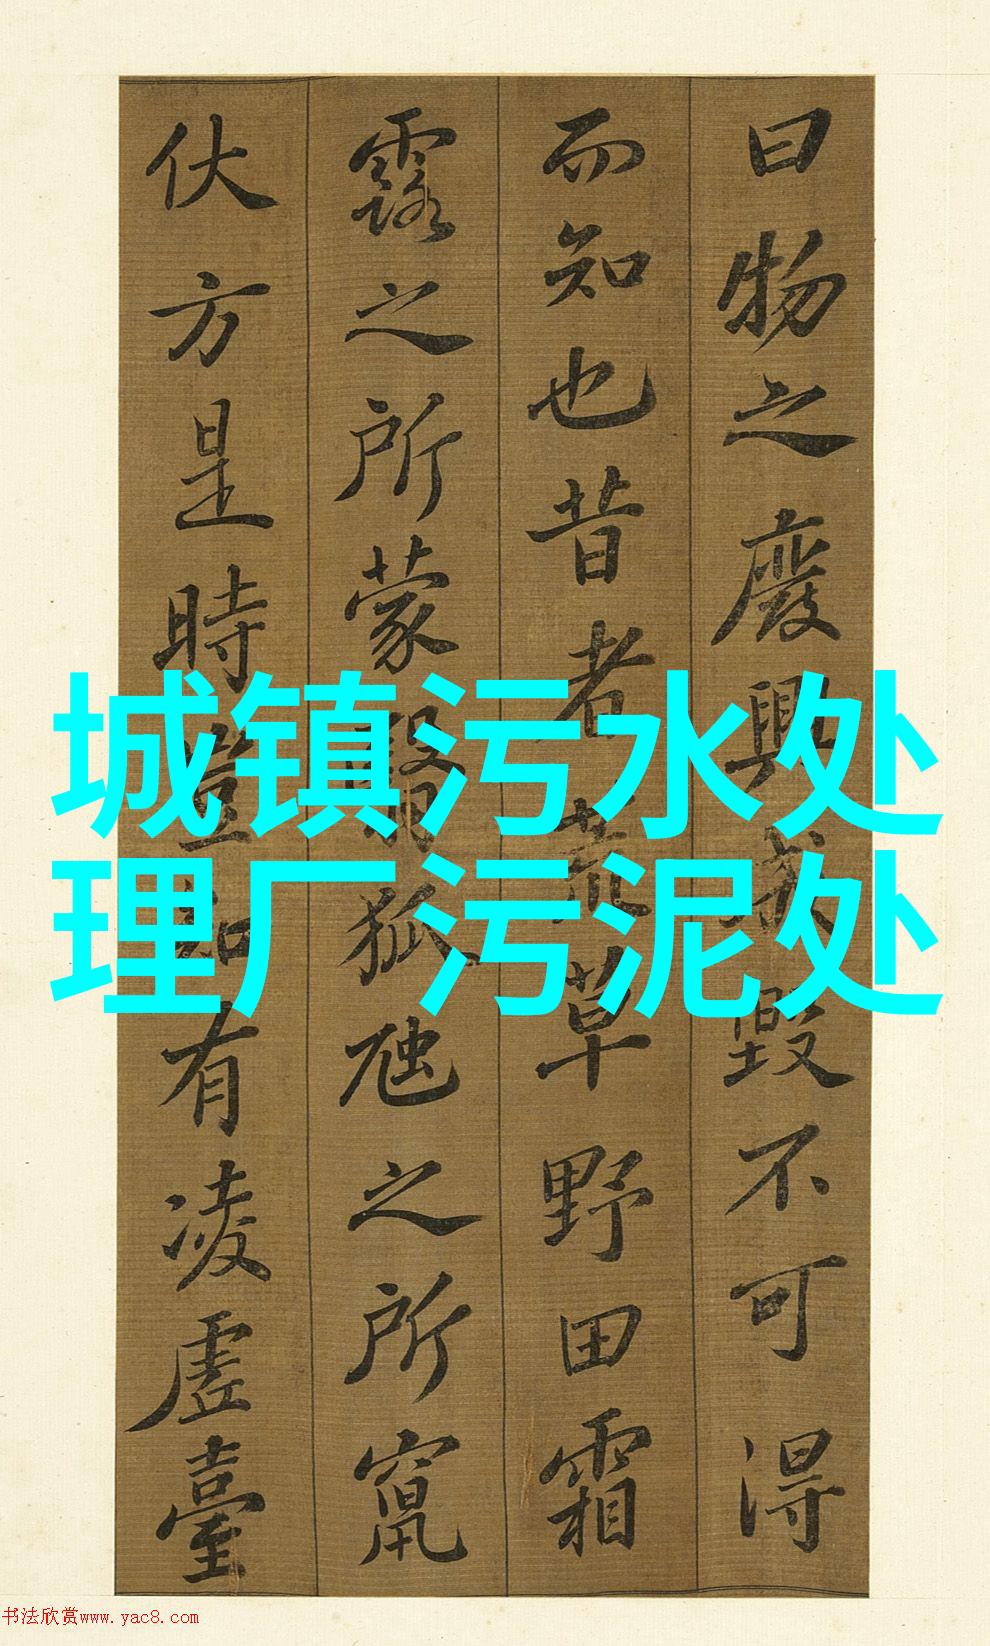 曰物之廢興成毀不可得
而知也昔者荒草野田霜
露之所蒙翳狐虺之所竄
伏方是時豈知有凌虛臺
城镇污水处
理厂污泥处
书法欣赏www.yac8.com